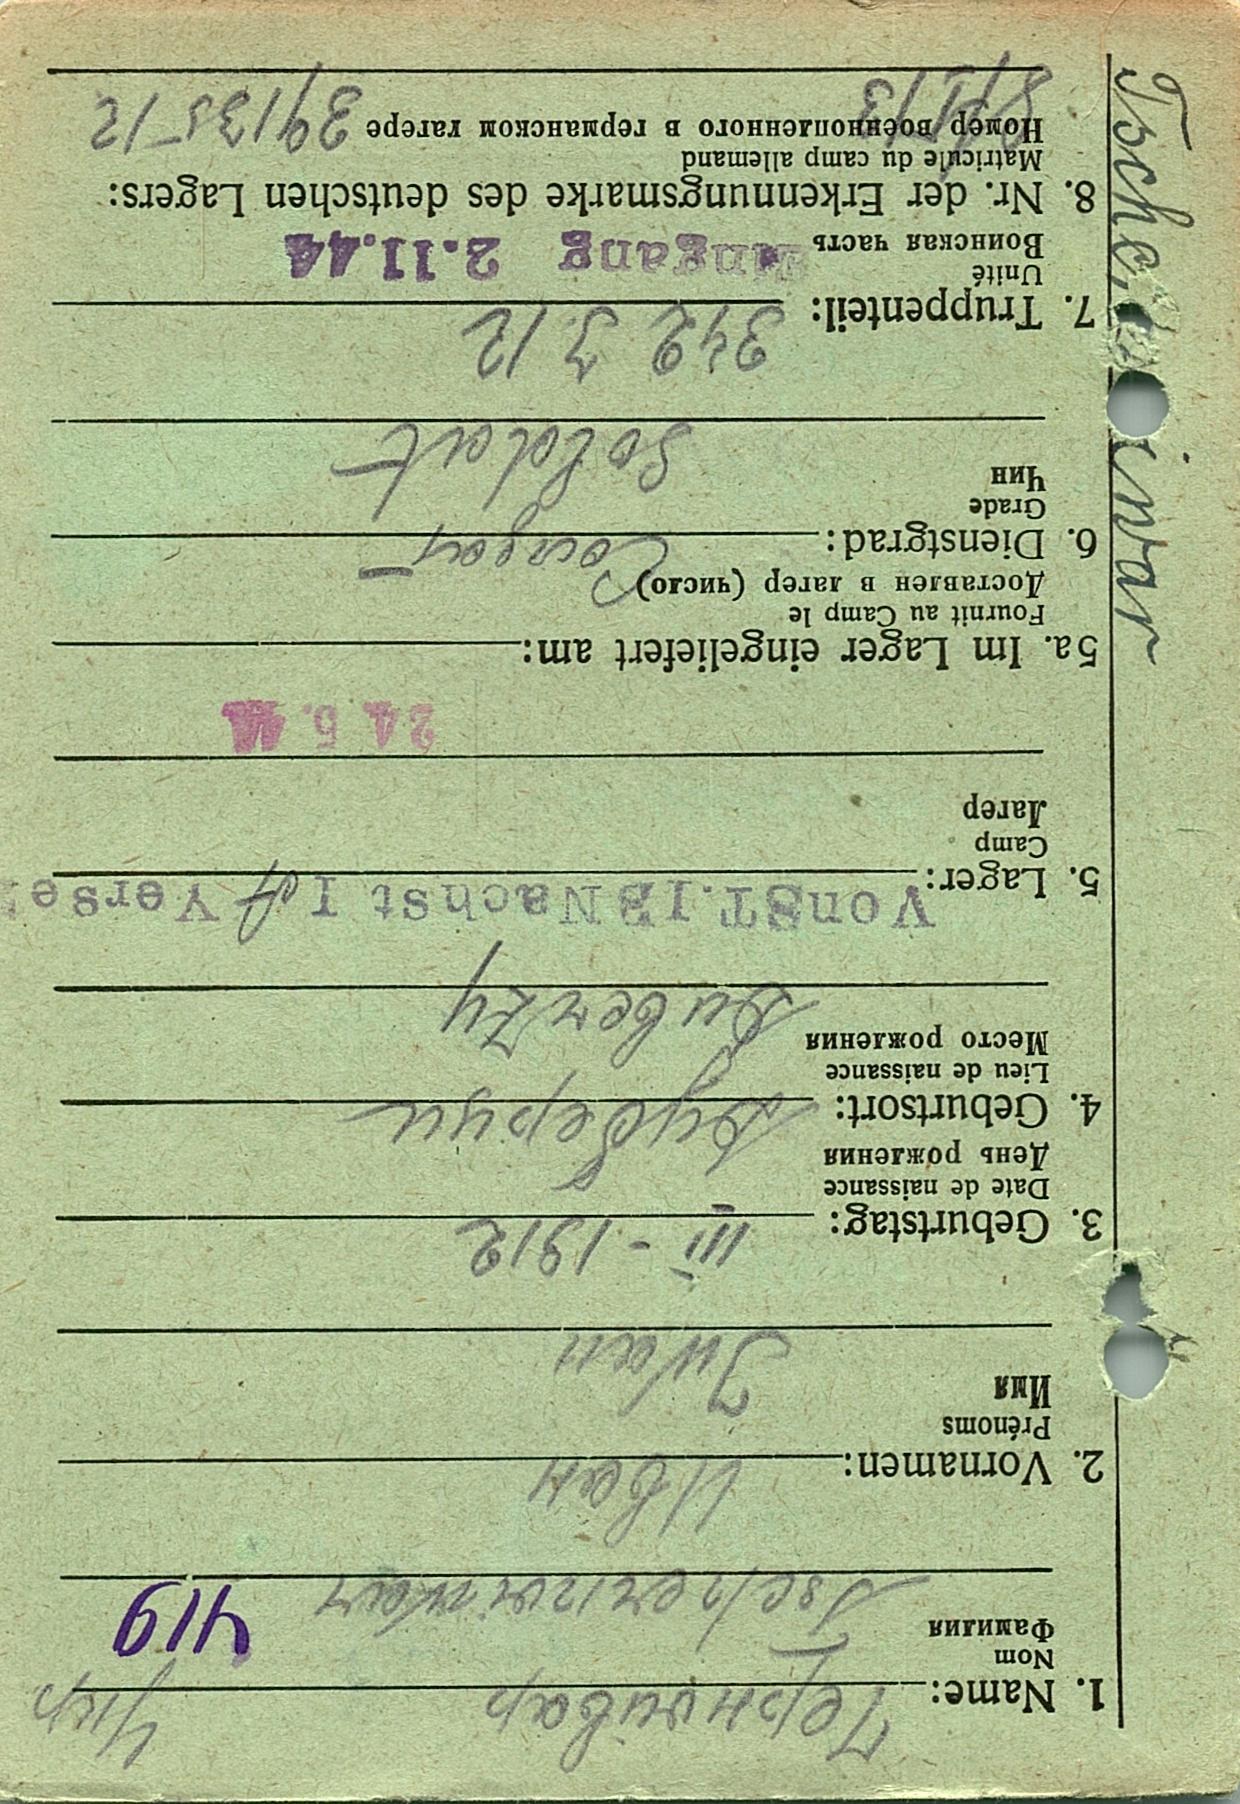 Укр
1. Name: Чернывар
Nom
Фамилия
419
2. Vornamen: Иван
Prénoms
Имя
Iwan
3. Geburtstag: III - 1912
Date de naissance
День рождения
4. Geburtsort:
Lieu de naissance
Место рождения
5. Lager: Von ST.IB Nach st I A Verse
Camp
Лагерь
24. 5. 44
5a. Im Lager eingeliefert am:
Fournit au Camp le
Доставлен в лагер (число)
6. Dienstgrad: Солдат
Grade
Чин
Soldat
7. Truppenteil: 342 З. 12
Unité
Воинская часть
Eingang 2.11.44
8. Nr. der Erkennungsmarke des deutschen Lagers:
Matricule du camp allemand
Номер военнопленного в германском лагере 39135-12